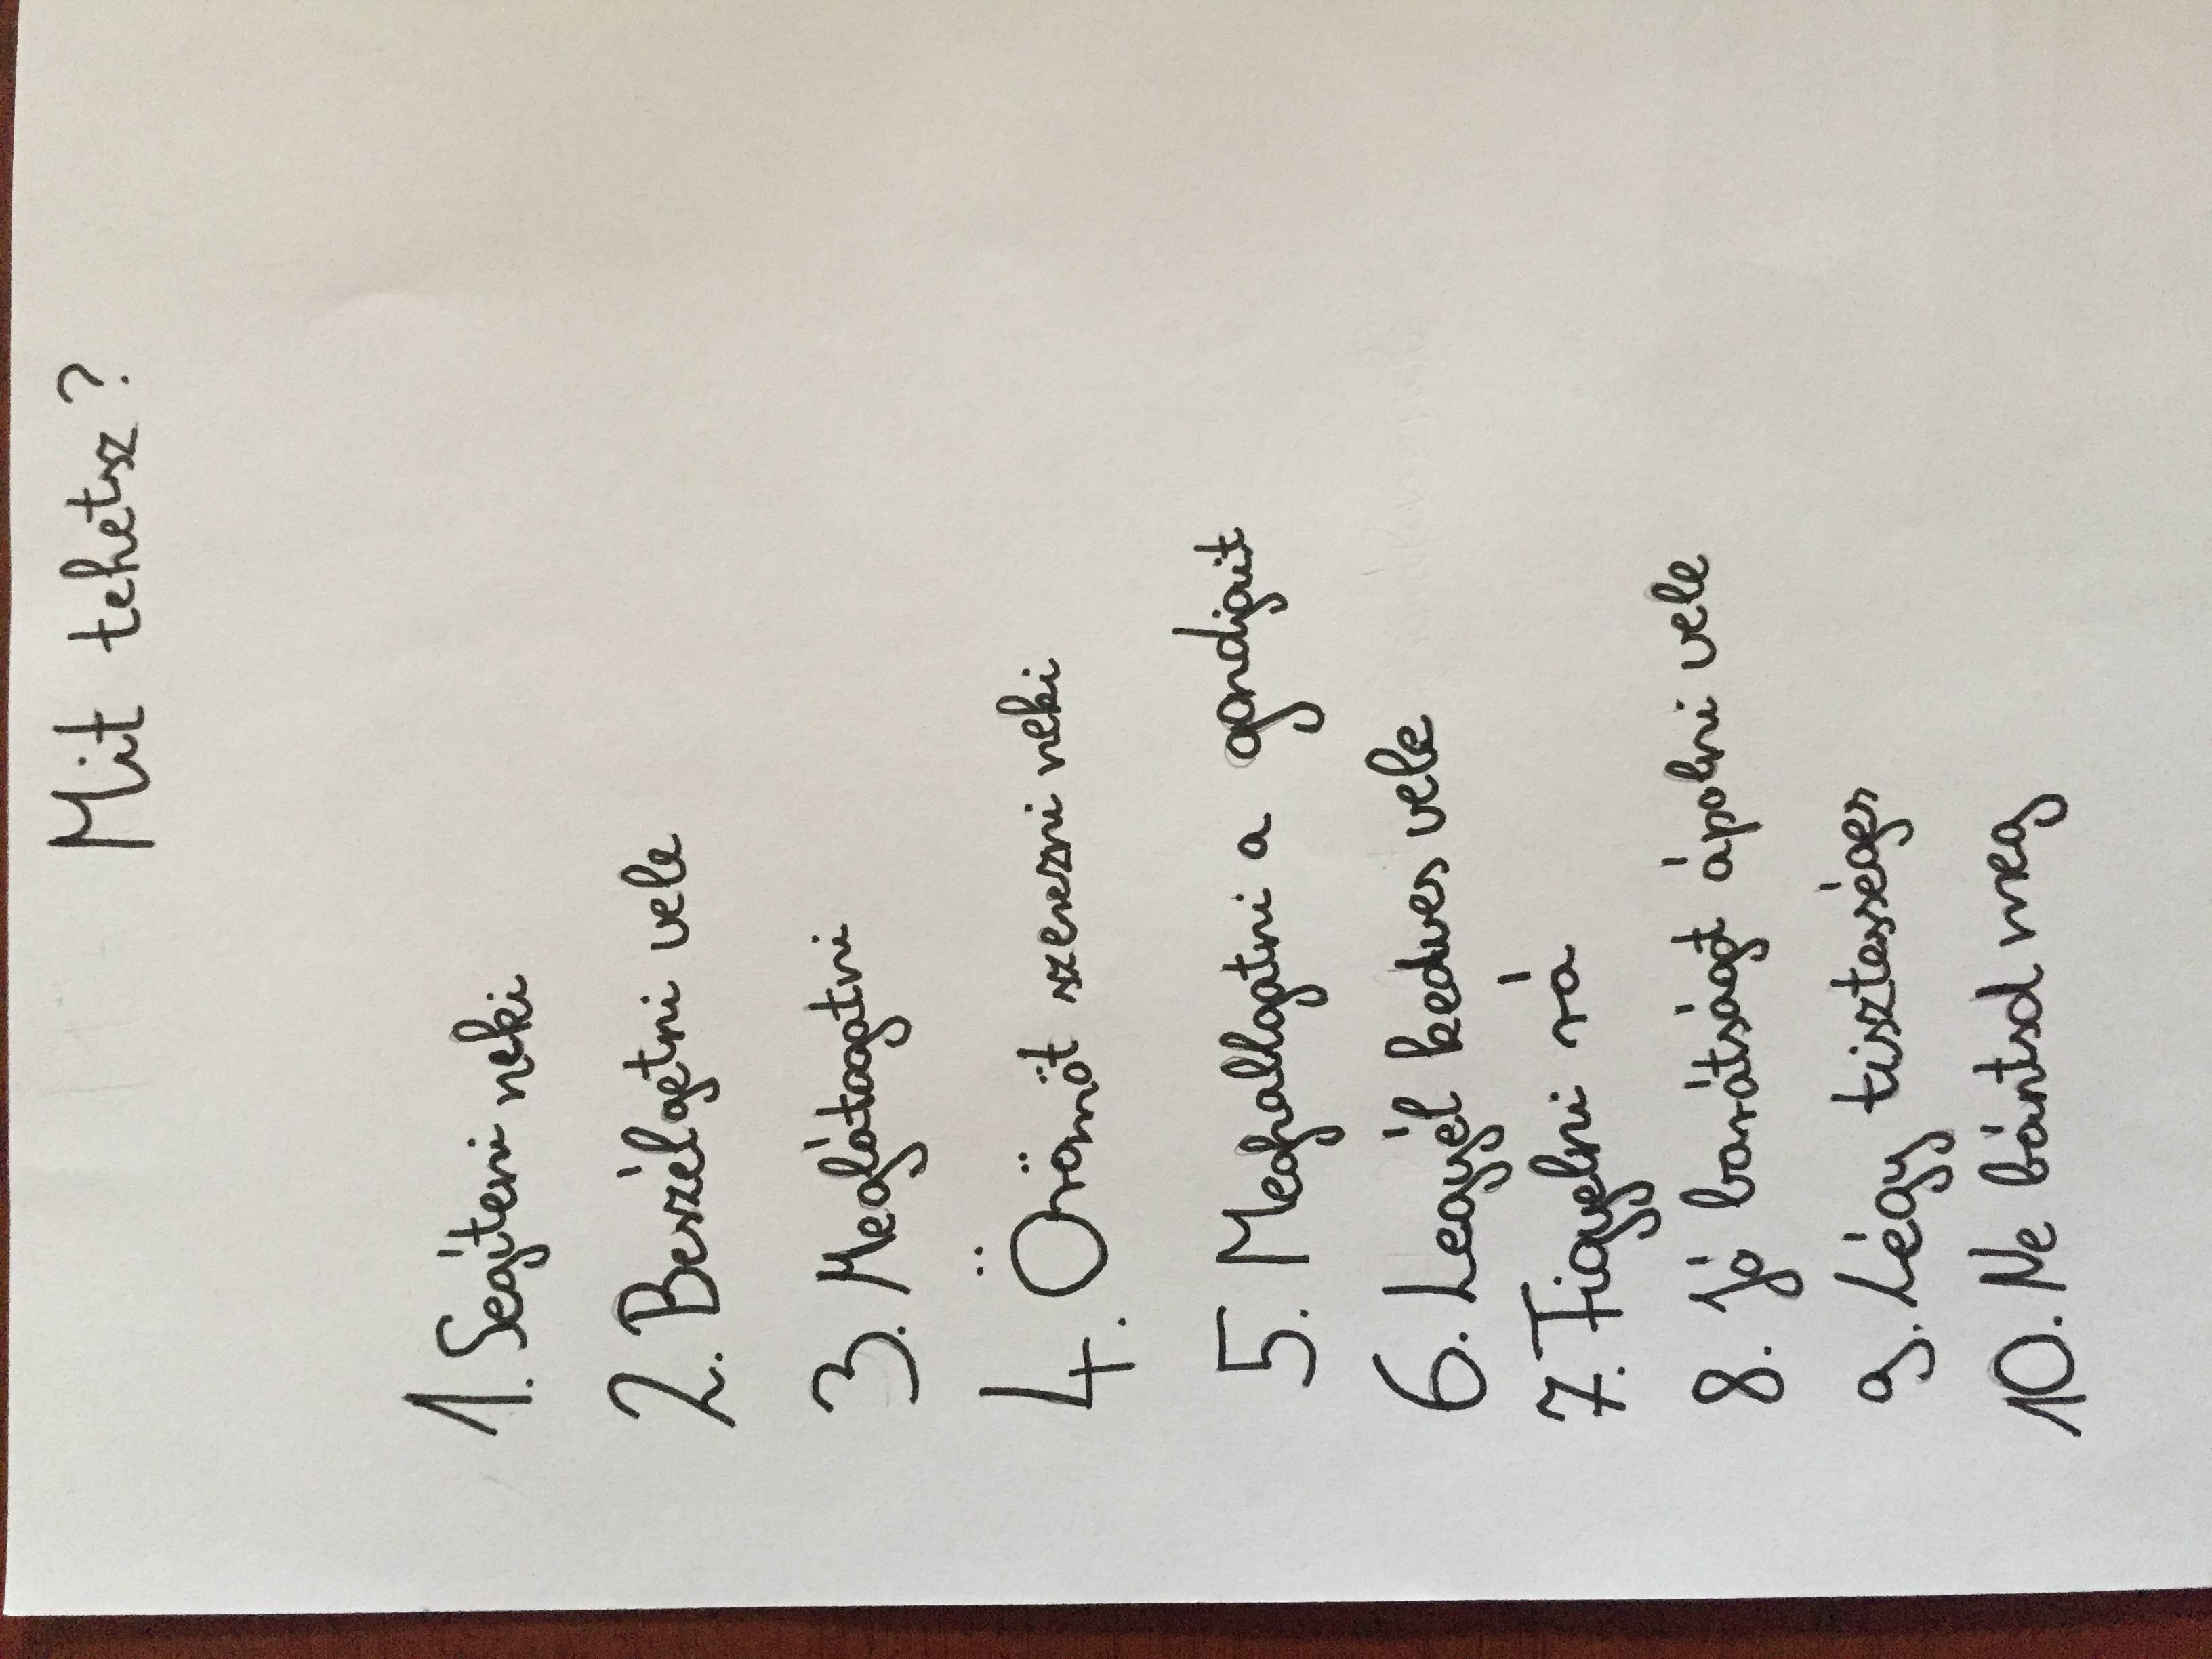 Mit tehetsz?
1. Segíteni neki
2. Beszélgetni vele
3. Meglátogatni
4. Örömöt szerezni neki
5. Meghallgatni a gondjait
6. Legyél kedves vele
7. Figyelni rá
8. Jó barátságot ápolni vele
9. Légy tisztességes
10. Ne bántsd meg